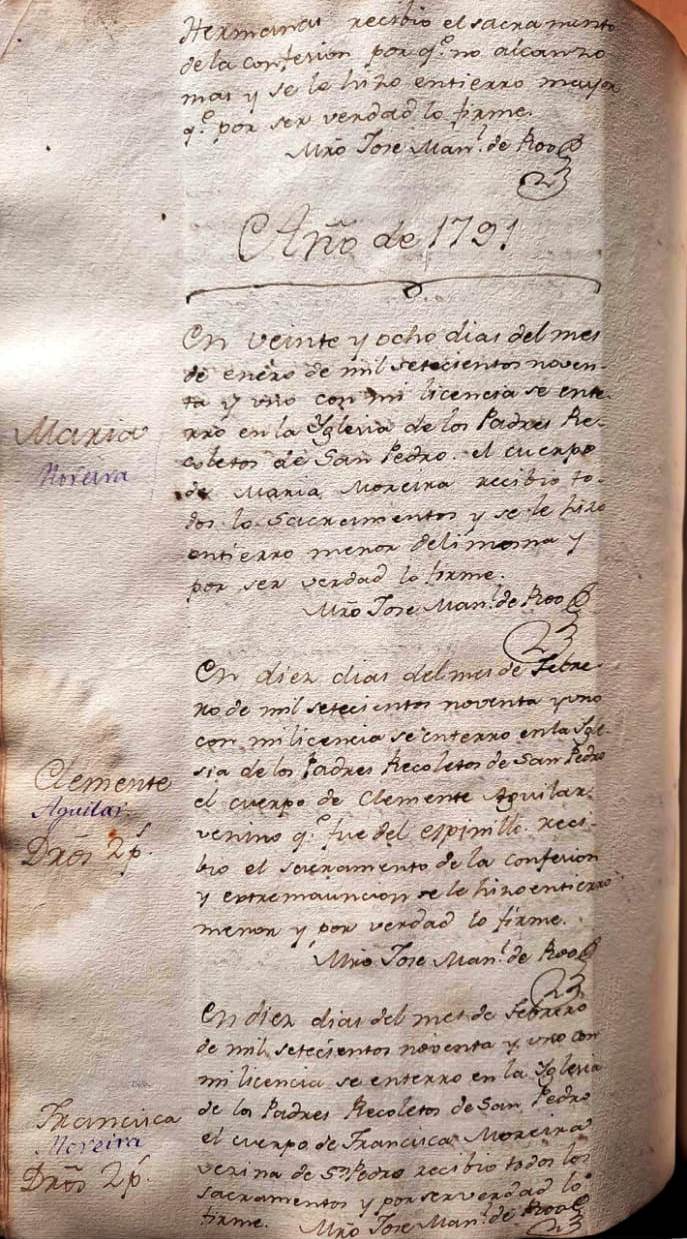 Hermanas recibio el sacramento
de la confesion por q.e no alcanzo
mas y se le hizo entierro mayor
q.e por ser verdad lo firme.
Mro Jose Man.l de Roo
Año de 1791
En veinte y ocho dias del mes
de enero de mil setecientos noven-
ta y uno con mi licencia se ente-
rro en la Yglesia de los Padres Re-
coletos de San Pedro. el cuerpo
de Maria Moreira recibio to-
dos lo Sacramentos y se le hizo
entierro menor de limosna y
por ser verdad lo firme.
Mro Jose Man.l de Roo
Maria
Moreira
En diez dias del mes de Febre-
ro de mil setecientos noventa y uno
con mi licencia se enterro en la Ygle-
sia de los Padres Recoletos de San Pedro
el cuerpo de Clemente Aguilar.
vecino q.e fue del espinillo. reci-
bio el sacramento de la confesion
y extremauncion se le hizo entierro
menor y por verdad lo firme.
Mro Jose Man.l de Roo
Clemente
Aguilar.
Dros 2 p.s
En diez dias del mes de Febrero
de mil setecientos noventa y uno con
mi licencia se enterro en la Yglesia
de los Padres Recoletos de San Pedro
el cuerpo de Francisca Moreira
vezina de S.n Pedro recibio todos los
sacramentos y por ser verdad lo
firme. Mro Jose Man.l de Roo
Francisca
Moreira
Dros 2 p.s